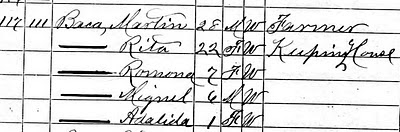 117 111 Baca, Martin 28 M W Farmer
—— Rita 22 F W Keeping House
—— Romona 7 F W
—— Miguel 6 M W
—— Adalida 1 F W